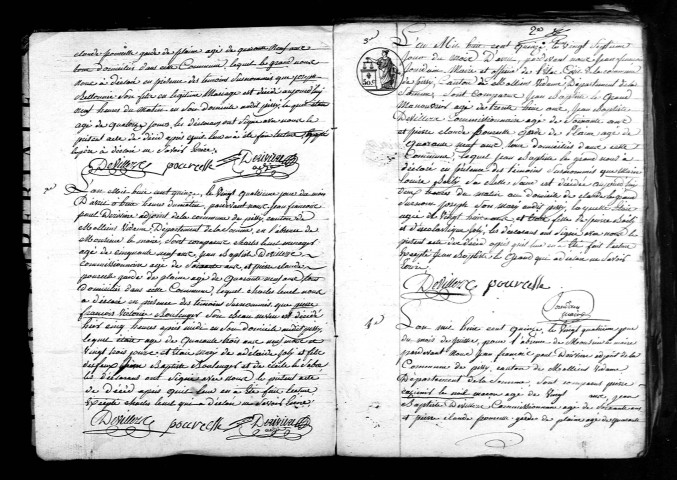 claude pourcelle garde de plaine agé de quarante neuf ans
tous domiciliés dans cette Commune, lequel le grand nous
a déclaré en présence des témoins Susnommés que joseph
Son fils en légitime Mariage est décédé aujourd'hui
neuf heures du Matin en Son domicile audit pissy, lequel était
agé de quatorze jours, les déclarants ont Signé avec nous le
présent acte de décès après qu'il leur en a été fait lecture
le père a déclaré ne Savoir Ecrire
Devillerz pourcelle Derivier
adjt
2e
L'an Mil huit cent quinze, le Vingt quatrième jour du mois
D'avril à huit heures du matin, pardevant nous jean francois
paul Derivier adjoint de la commune de pissy, canton de
Molliens Vidam, Département de la Somme, en l'absence de
Monsieur le maire, Sont comparus charles leul ménager
agé de cinquante neuf ans, jean Baptiste Devillerz
Commissionnaire agé de Soixante ans, et pierre claude
pourcelle garde de plaine agé de quarante neuf ans tous
Domiciliés dans cette Commune, lequel charles leul nous
a déclaré en présence des témoins Susnommés, que pierre
françois Victorice Boulenger Son beau neveu est décédé
hier cinq heures après midi en Son domicile audit pissy
lequel était agé de quarante trois ans neuf mois et
Vingt trois jours et Etait mary de adélaïde joly et fils
de feu Jean Baptiste Boulenger et de cécile le Sobre
les déclarants ont Signé avec nous le présent acte
de Décès après qu'il leur en a été fait lecture
Excepté charles leul qui a déclaré ne Savoir Ecrire
Devillerz pourcelle Derivier
adjt
20
3e
L'an Mil huit cent quinze, le Vingt Septième
jour du mois D'avril, pardevant nous jean francois
Jourdain Maire et officier de l'Etat Civil de la commune
de pissy, canton de Molliens Vidam Département de la
Somme, Sont Comparus jean Baptiste le Grand
Manouvrier agé de trente huit ans, jean Baptiste
Devillerz Commissionnaire agé de Soixante ans
et pierre claude pourcelle Garde de Plaine agé de
quarante neuf ans tous domiciliés dans cette
Commune, lequel jean Baptiste le grand nous a
déclaré en présence des témoins Susnommés que marie
louise joly Sa belle Sœur est décédée aujourd'hui
deux heures du matin au domicile de claude le grand
Surnom joseph Son mary audit pissy, laquelle était
agée de Vingt huit ans et était fille de pierre
et joly, les déclarants ont Signé avec nous le
présent acte de décès après qu'il leur en a Eté fait lecture
Excepté jean Baptiste le Grand qui a déclaré ne Savoir
Ecrire
Devillerz pourcelle
Jourdain
maire
4e
L'an mil huit cent quinze, le Vingt quatrième jour
du mois de pour l'absence de Monsieur le maire
pardevant Nous jean françois paul Derivier adjoint de la
Commune de pissy, canton de Molliens Vidam
Département de la Somme, Sont comparus pierre
agé de Vingt ans, jean
Baptiste Devillerz Commissionnaire agé de Soixante ans
et pierre claude pourcelle garde de plaine agé de quarante